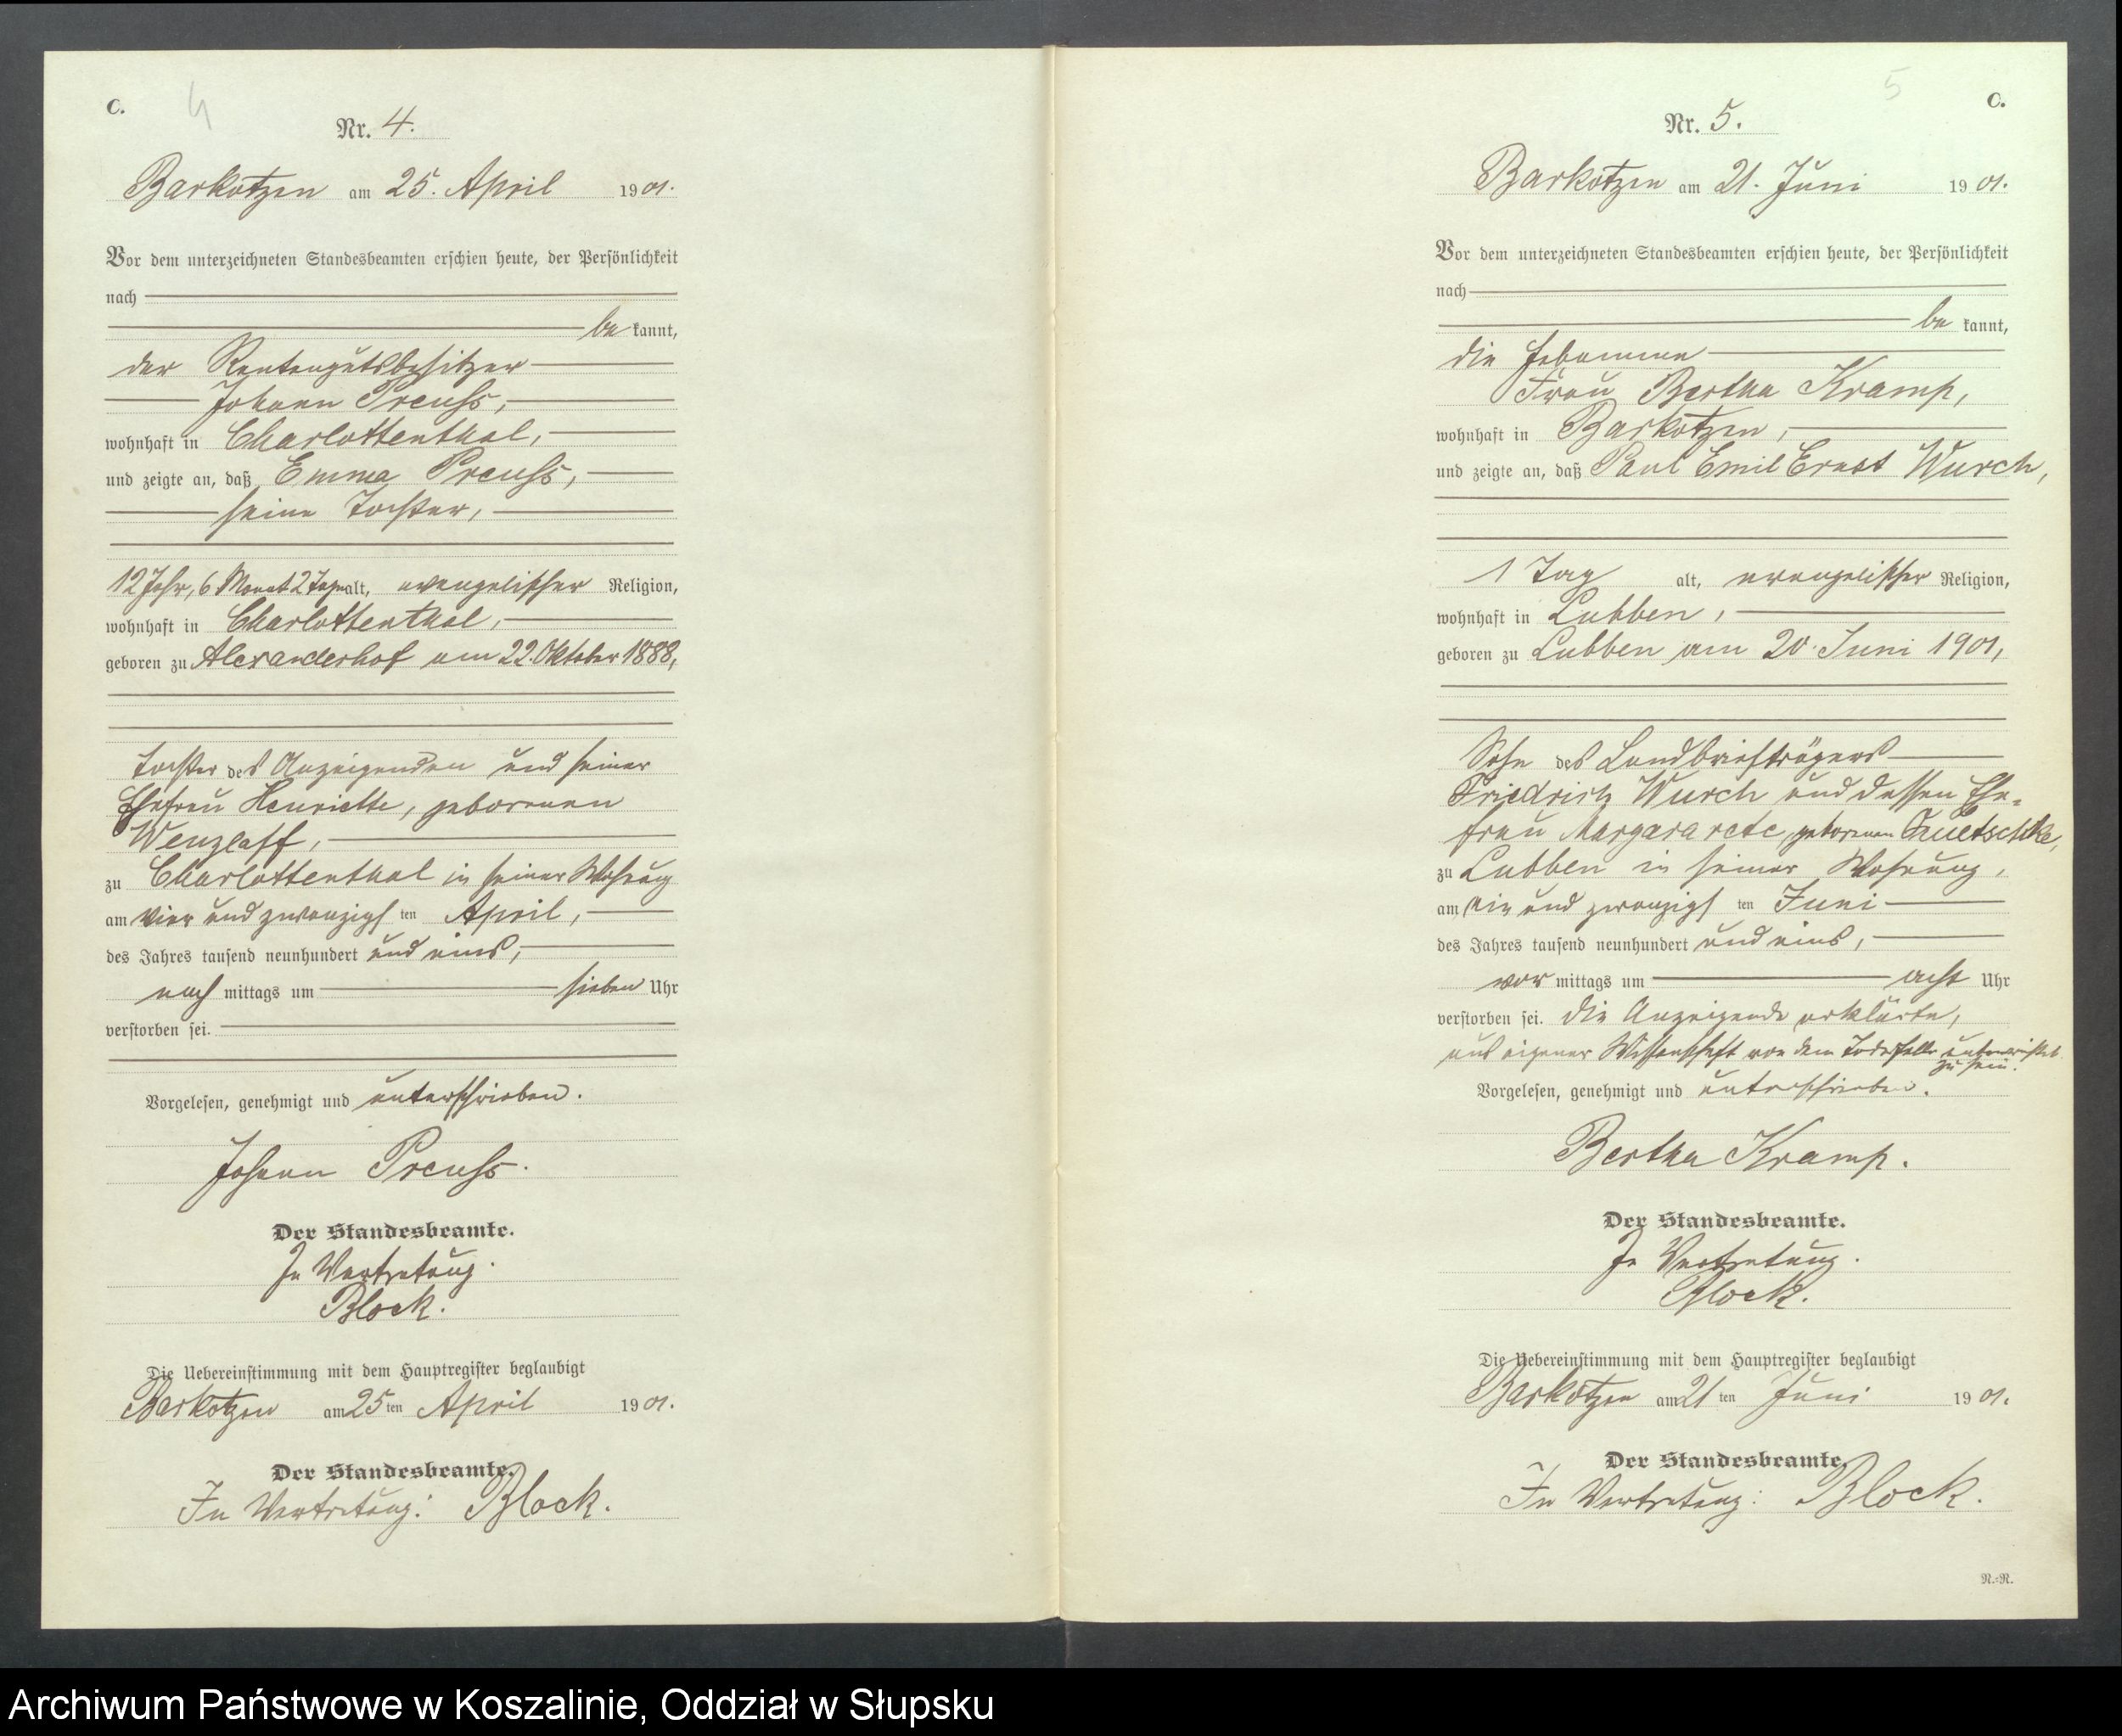 C.
4
Nr. 4.
Barkotzen am 25. April 1901.
Vor dem unterzeichneten Standesbeamten erschien heute, der Persönlichkeit
nach
be kannt,
der Rentengutsbesitzer
Johann Preuß,
wohnhaft in Charlottenthal,
und zeigte an, daß Emma Preuß,
seine Tochter,
12 Jahr, 6 Monat 2 Tage alt, evangelischer Religion,
wohnhaft in Charlottenthal,
geboren zu Alexanderhof am 22. Oktober 1888,
Tochter des Anzeigenden und seiner
Ehefrau Henriette, geborenen
Wenzlaff,
zu Charlottenthal in seiner Wohnung
am vier und zwanzigsten April,
des Jahres tausend neunhundert und eins,
nach mittags um sieben Uhr
verstorben sei.
Vorgelesen, genehmigt und unterschrieben.
Johann Preuß.
Der Standesbeamte.
In Vertretung.
Block.
Die Uebereinstimmung mit dem Hauptregister beglaubigt
Barkotzen am 25ten April 1901.
Der Standesbeamte.
In Vertretung: Block.
5
C.
Nr. 5.
Barkotzen am 21. Juni 1901.
Vor dem unterzeichneten Standesbeamten erschien heute, der Persönlichkeit
nach
be kannt,
die Hebamme
Frau Bertha Kramp,
wohnhaft in Barkotzen,
und zeigte an, daß Paul Emil Ernst Wurch,
1 Tag alt, evangelischer Religion,
wohnhaft in Lubben,
geboren zu Lubben am 20. Juni 1901,
Sohn des Landbriefträgers
Friedrich Wurch und dessen Ehe-
frau Margararete, geborenen
zu Lubben in seiner Wohnung,
am ein und zwanzigsten Juni
des Jahres tausend neunhundert und eins,
vor mittags um acht Uhr
verstorben sei. Die Anzeigende erklärte,
aus eigener Wissenschaft von dem Todesfalle unterrichtet
zu sein.
Vorgelesen, genehmigt und unterschrieben.
Bertha Kramp.
Der Standesbeamte.
In Vertretung.
Block.
Die Uebereinstimmung mit dem Hauptregister beglaubigt
Barkotzen am 21ten Juni 1901.
Der Standesbeamte.
In Vertretung: Block.
N.-R.
Archiwum Państwowe w Koszalinie, Oddział w Słupsku